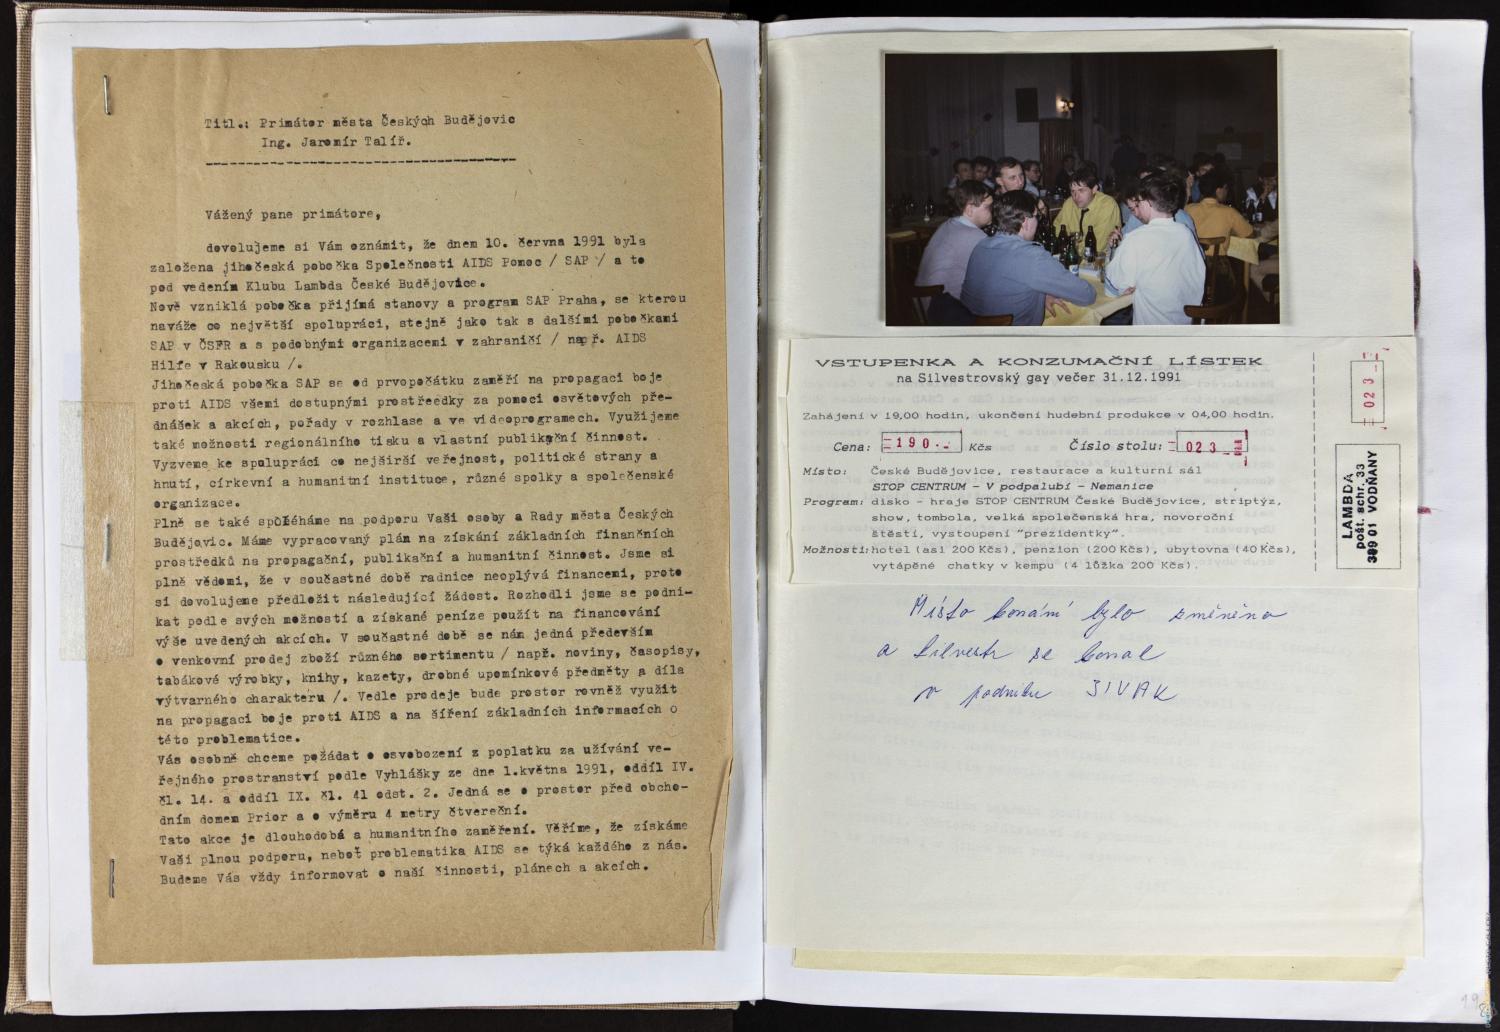 Titl.: Primátor města Českých Budějovic
Ing. Jaromír Talíř.
Vážený pane primátore,
dovolujeme si Vám oznámit, že dnem 10. června 1991 byla
založena jihočeská pobočka Společnosti AIDS Pomoc / SAP / a to
pod vedením Klubu Lambda České Budějovice.
Nově vzniklá pobočka přijímá stanovy a program SAP Praha, se kterou
naváže co největší spolupráci, stejně jako tak s dalšími pobočkami
SAP v ČSFR a s podobnými organizacemi v zahraničí / např. AIDS
Hilfe v Rakousku /.
Jihočeská pobočka SAP se od prvopočátku zaměří na propagaci boje
proti AIDS všemi dostupnými prostředky za pomoci osvětových pře-
dnášek a akcích, pořady v rozhlase a ve videoprogramech. Využijeme
také možnosti regionálního tisku a vlastní publikační činnost.
Vyzveme ke spolupráci co nejširší veřejnost, politické strany a
hnutí, církevní a humanitní instituce, různé spolky a společenské
organizace.
Plně se také spoléháme na podporu Vaší osoby a Rady města Českých
Budějovic. Máme vypracovaný plán na získání základních finančních
prostředků na propagační, publikační a humanitní činnost. Jsme si
plně vědomi, že v součastné době radnice neoplývá financemi, proto
si dovolujeme předložit následující žádost. Rozhodli jsme se podni-
kat podle svých možností a získané peníze použít na financování
výše uvedených akcích. V součastné době se nám jedná především
o venkovní prodej zboží různého sortimentu / např. noviny, časopisy,
tabákové výrobky, knihy, kazety, drobné upomínkové předměty a díla
výtvarného charakteru /. Vedle prodeje bude prostor rovněž využit
na propagaci boje proti AIDS a na šíření základních informacích o
této problematice.
Vás osobně chceme požádat o osvobození z poplatku za užívání ve-
řejného prostranství podle Vyhlášky ze dne 1.května 1991, oddíl IV.
čl. 14. a oddíl IX. čl. 41 odst. 2. Jedná se o prostor před obcho-
dním domem Prior a o výměru 4 metry čtvereční.
Tato akce je dlouhodobá a humanitního zaměření. Věříme, že získáme
Vaši plnou podporu, neboť problematika AIDS se týká každého z nás.
Budeme Vás vždy informovat o naší činnosti, plánech a akcích.
VSTUPENKA A KONZUMAČNÍ LÍSTEK
na Silvestrovský gay večer 31.12.1991
Zahájení v 19,00 hodin, ukončení hudební produkce v 04,00 hodin.
Cena: 190.- Kčs Číslo stolu: 023
Místo: České Budějovice, restaurace a kulturní sál
STOP CENTRUM - V podpalubí - Nemanice
Program: disko - hraje STOP CENTRUM České Budějovice, striptýz,
show, tombola, velká společenská hra, novoroční
štěstí, vystoupení "prezidentky".
Možnosti: hotel (asi 200 Kčs), penzion (200 Kčs), ubytovna (40 Kčs),
vytápěné chatky v kempu (4 lůžka 200 Kčs).
023
LAMBDA
pošt. schr. 33
389 01 VODŇANY
Místo konání bylo změněno
a Silvestr se konal
v podniku SIVAK